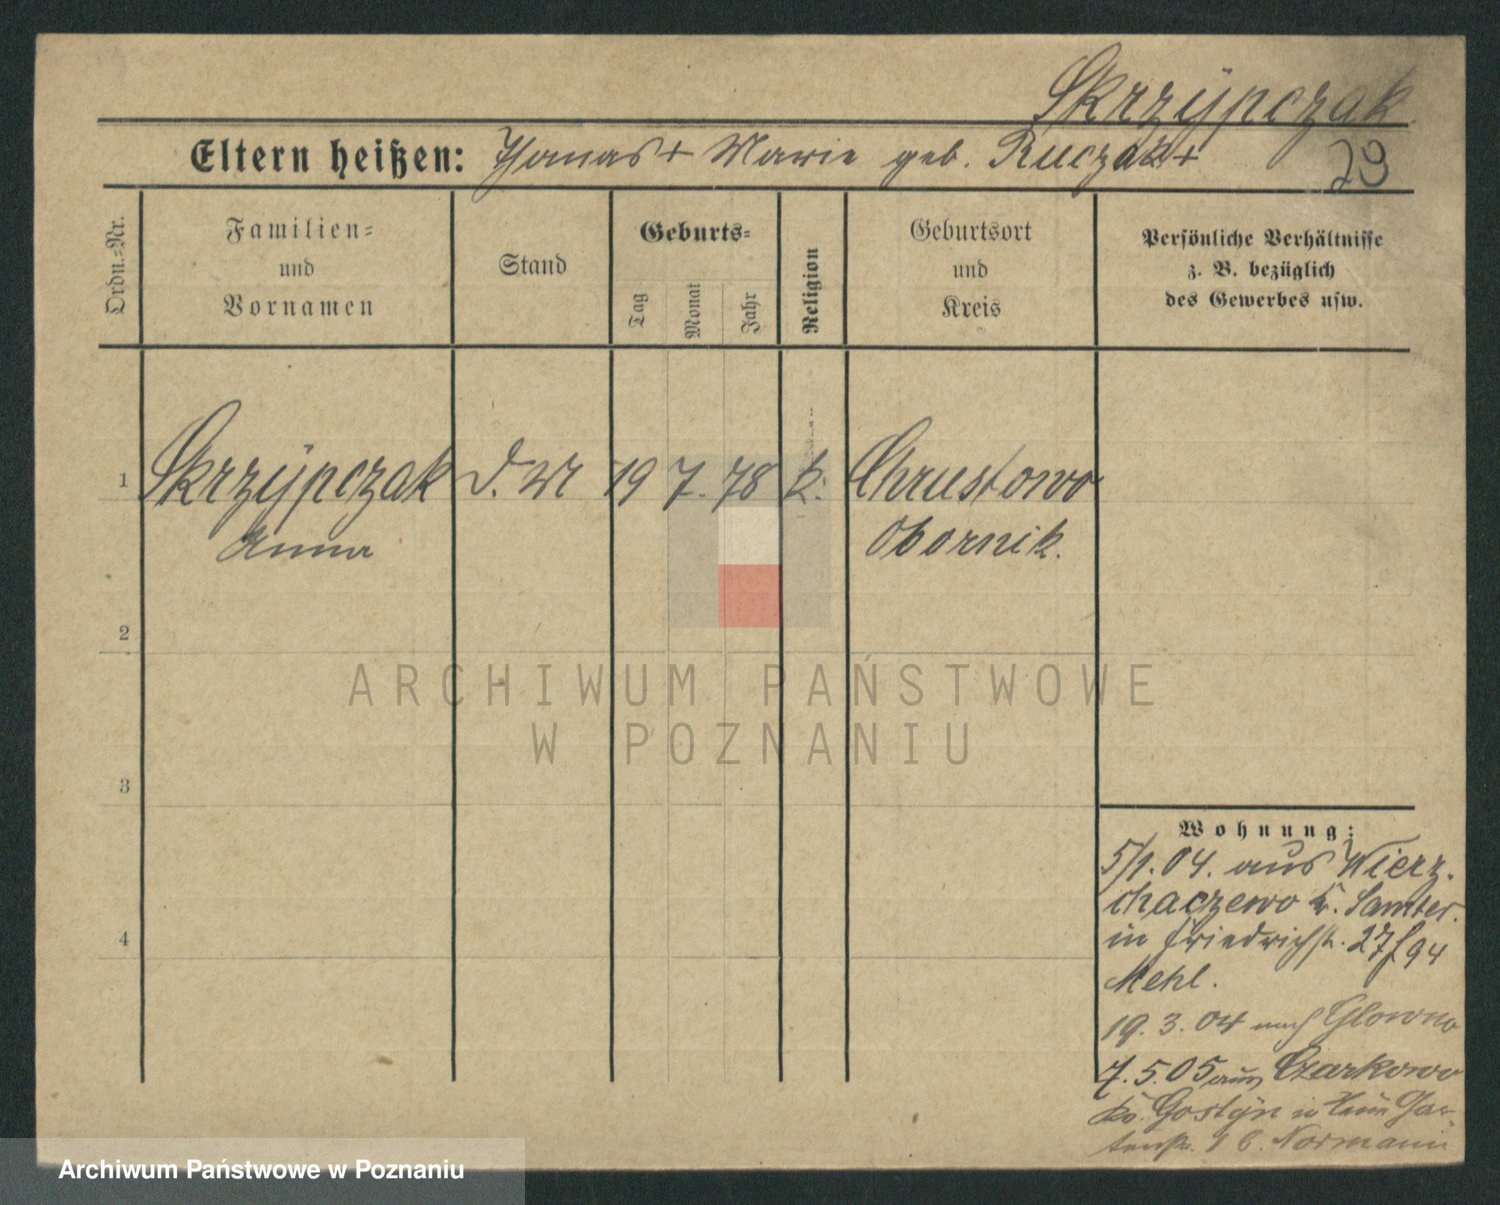 Skrzypczak
Eltern heißen: Thomas + Marie geb. Ruczak +
29
Ordn.-Nr.
Familien-
und
Vornamen
Stand
Geburts-
Tag
Monat
Jahr
Religion
Geburtsort
und
Kreis
Persönliche Verhältnisse
z. B. bezüglich
des Gewerbes usw.
1
Skrzypczak
Anna
d. M
19
7.
78
k.
Chrustowo
Obornik.
2
3
4
Wohnung:
5/1. 04. aus Wierz-
chaczewo K. Samter.
in Friedrichstr. 27/94
Mehl.
19. 3. 04 nach Glowno
7. 5. 05 aus Czarkowo
Kr. Gostyn in Neue Gar-
tenstr. 16. Normann
ARCHIWUM PAŃSTWOWE
W POZNANIU
Archiwum Państwowe w Poznaniu